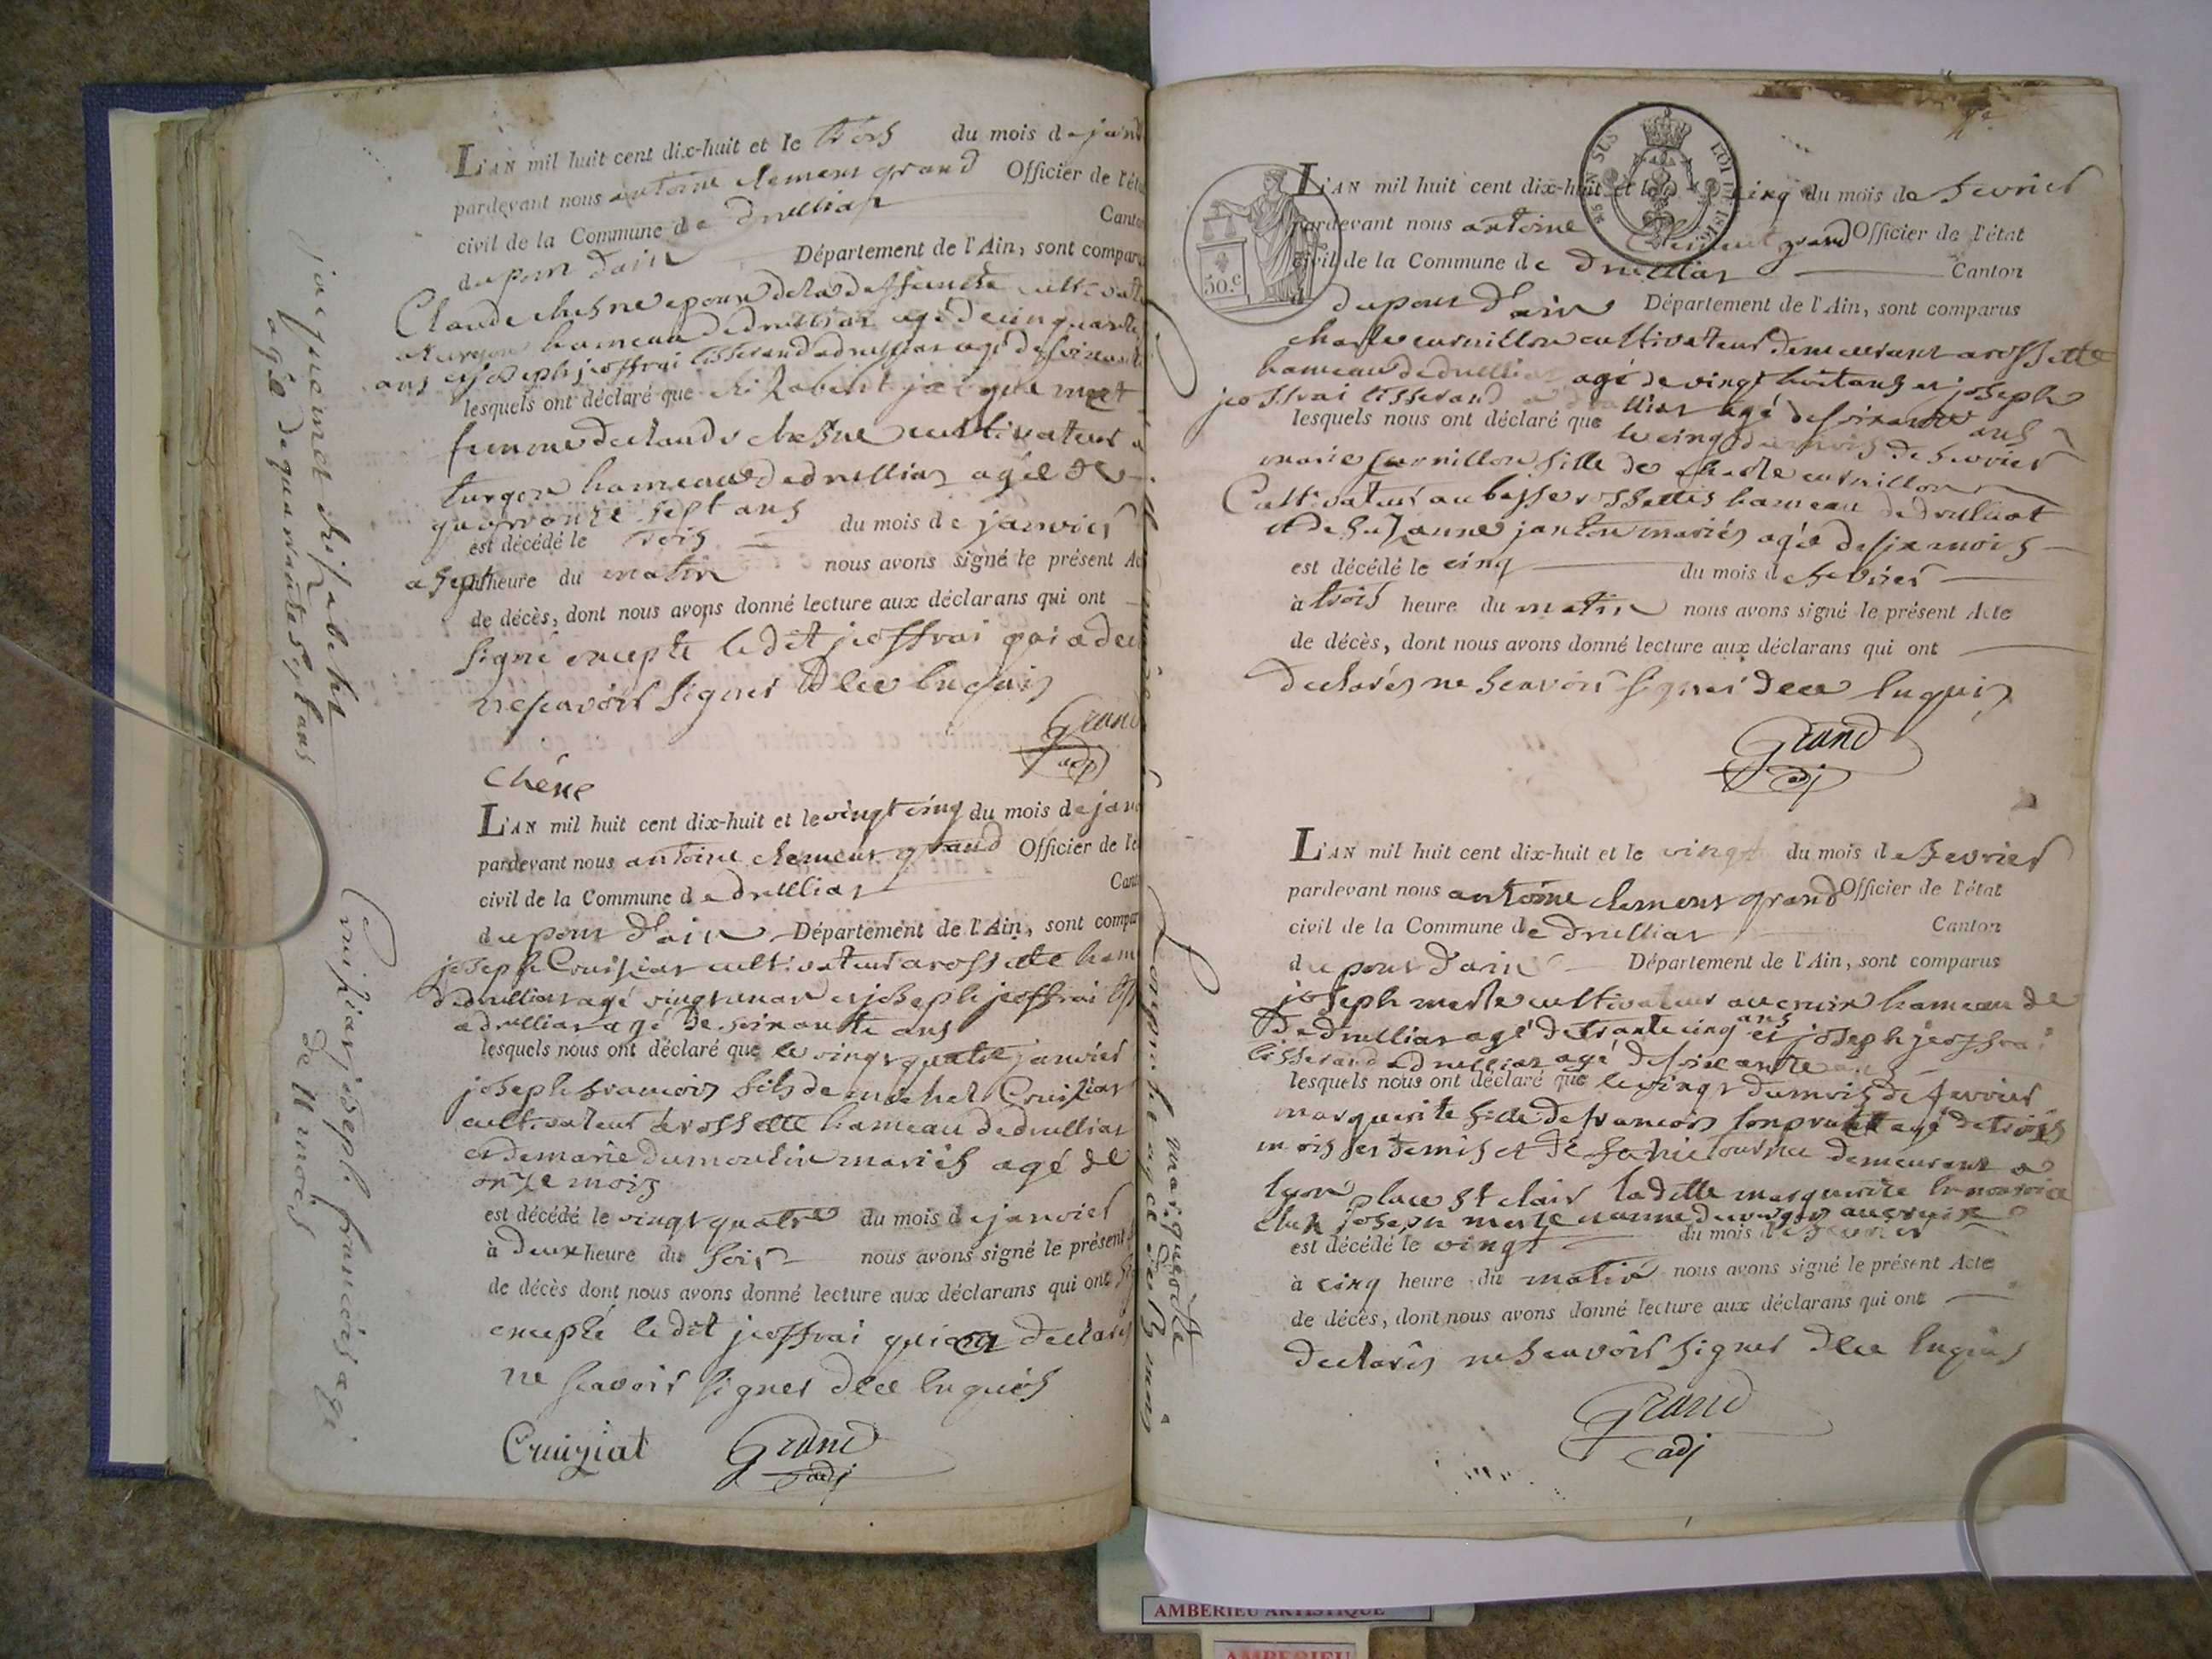 L'AN mil huit cent dix-huit et le trois du mois de janv
pardevant nous antoine clement grand Officier de l'éta
civil de la Commune de druilliat Canto
du pont dain Département de l'Ain, sont comparu
Claude chesne epoux de la deffuncte cultivat
a turgon hameau de druillias agé de cinquante
ans et joseph jeoffrai tisserand a druillias agé de soixante
lesquels ont déclaré que elizabeht jaiquemet
femme de claude chesne cultivateur a
turgon hameau de druillias agée de
quarrante sept ans
est décédé le trois du mois de janvier
a sept heure du matin nous avons signé le présent Ac
de décès, dont nous avons donné lecture aux déclarans qui ont
signé excepté ledit jeoffrai qui a dec
ne scavoir signer de ce enquis
Grand
adj
Chêne
jaquemet elisabeht
agée de quarante sept ans
L'AN mil huit cent dix-huit et le vingt cinq du mois de janv
pardevant nous antoine clement grand Officier de l'é
civil de la Commune de druillias Cant
du pont d'ain Département de l'Ain, sont compar
joseph Cruisias cultivateur a rossette ham
de druillias agé vingt neuf et joseph jeoffrai tiss
a druillias agé de soixante ans
lesquels nous ont déclaré que le vingt quatre janvier
joseph francois fils de michel Cruisias
cultivateur a rossette hameau de druillias
et de marie dumoulin mariés agé de
onze mois
est décédé le vingt quatre du mois de janvier
à deux heure du soir nous avons signé le présent
de décès dont nous avons donné lecture aux déclarans qui ont sig
excepté le dit jeoffrai qui a declarés
ne scavoir signer de ce enquis
Cruiziat Grand
adj
Cruisias joseph francois agé
de 11 mois
L'AN mil huit cent dix-huit et le cinq du mois de fevrier
pardevant nous antoine clement grand Officier de l'état
civil de la Commune de druillias Canton
du pont d'ain Département de l'Ain, sont comparus
charle curnillon cultivateur demeurant a rossette
hameau de druillias agé de vingt huit ans et joseph
jeoffrai tisserand a druillias agé de soixante ans
lesquels nous ont déclaré que le cinq du mois de fevrier
marie curnillon fille de charle curnillon
Cultivateur au basse rossettes hameau de druillat
et de suzanne janton mariés agée de six mois
est décédé le cinq du mois de fevrier
à trois heure du matin nous avons signé le présent Acte
de décès, dont nous avons donné lecture aux déclarans qui ont
declarés ne scavoir signer de ce enquis
Grand
adj
50.c
L'AN mil huit cent dix-huit et le vingt du mois de fevrier
pardevant nous antoine clement grand Officier de l'état
civil de la Commune de druillias Canton
du pont d'ain Département de l'Ain, sont comparus
joseph merle cultivateur au cruix hameau de
de druillias agé de trante cinq ans et joseph jeoffrai
tisserand a druillias agé de soixante ans
lesquels nous ont déclaré que le vingt du mois de fevrier
marguerite fille de francois agé de trois
mois et demis et de demeurant a
lyon place st clair la ditte marguerite en nourice
chez joseph merle au cruix
est décédé le vingt du mois de fevrier
à cinq heure du matin nous avons signé le présent Acte
de décès, dont nous avons donné lecture aux déclarans qui ont
declarés ne scavoir signer de ce enquis
Grand
adj
marguerite
AMBERIEU ARTISTIQUE
AMBERIEU